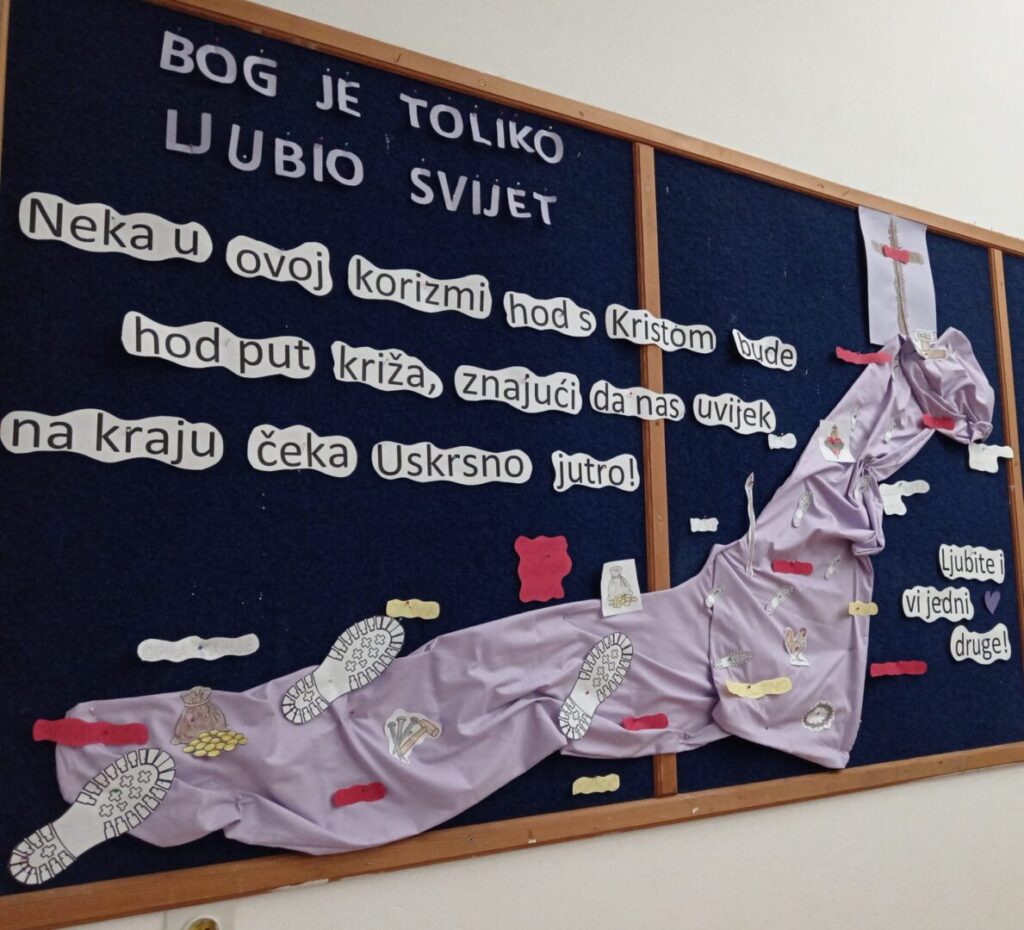 BOG JE TOLIKO
LJUBIO SVIJET
Neka u ovoj korizmi hod s Kristom bude
hod put križa, znajući da nas uvijek
na kraju čeka Uskrsno jutro!
Ljubite i
vi jedni
druge!